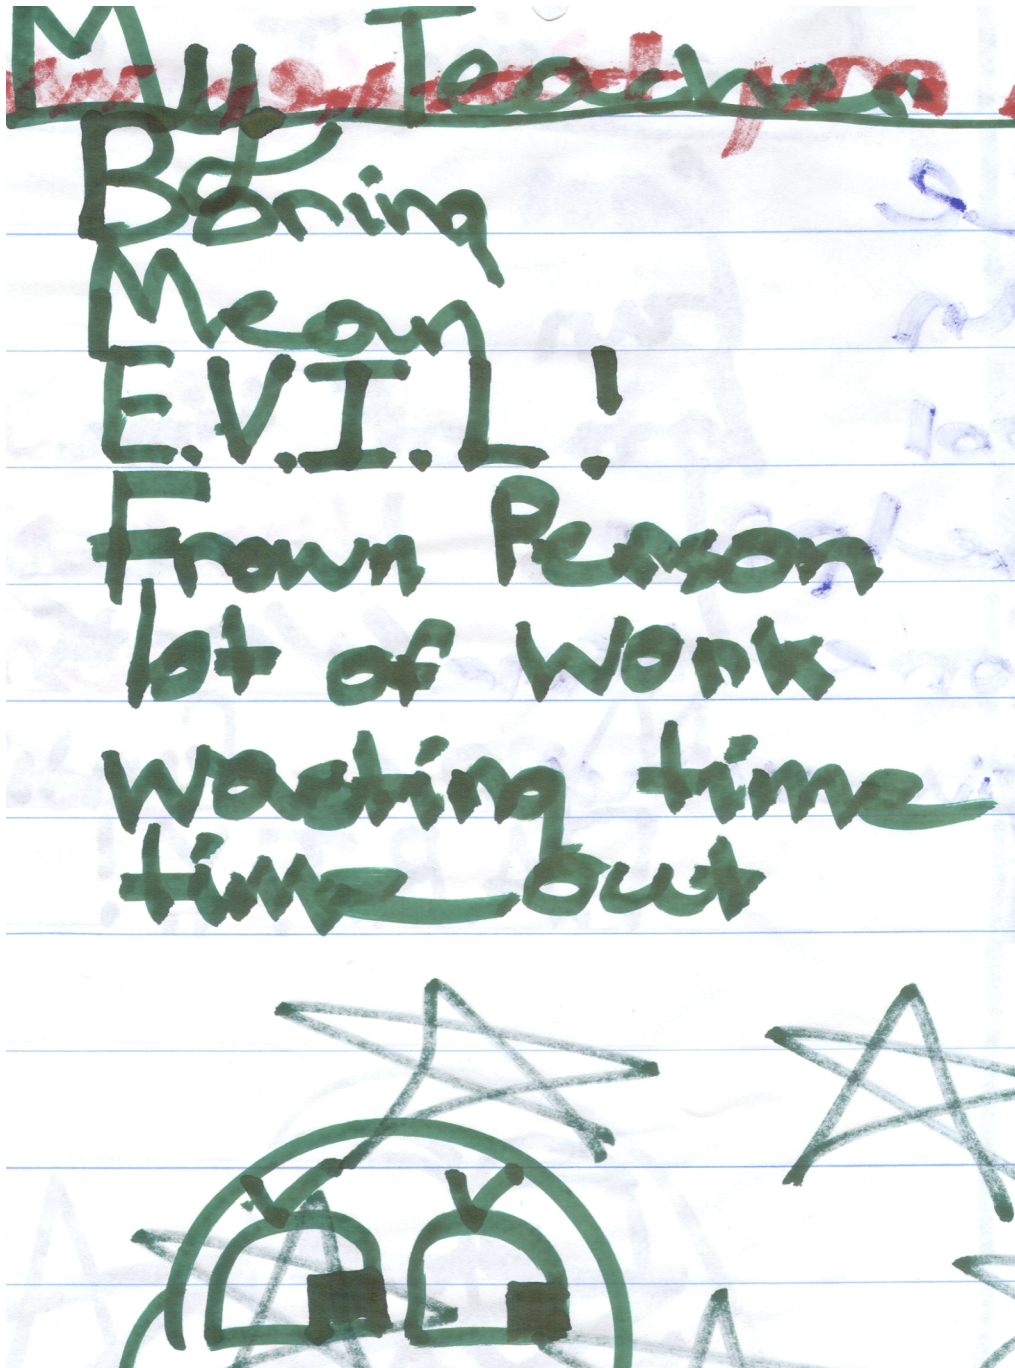 My Teacher
Boring
Mean
E.V.I.L!
Frown Person
lot of work
wasting time
time out